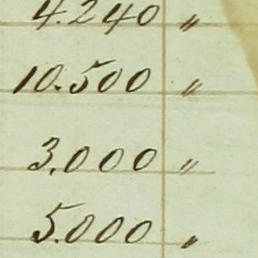 4.240 "
10.500 "
3.000 "
5.000 "